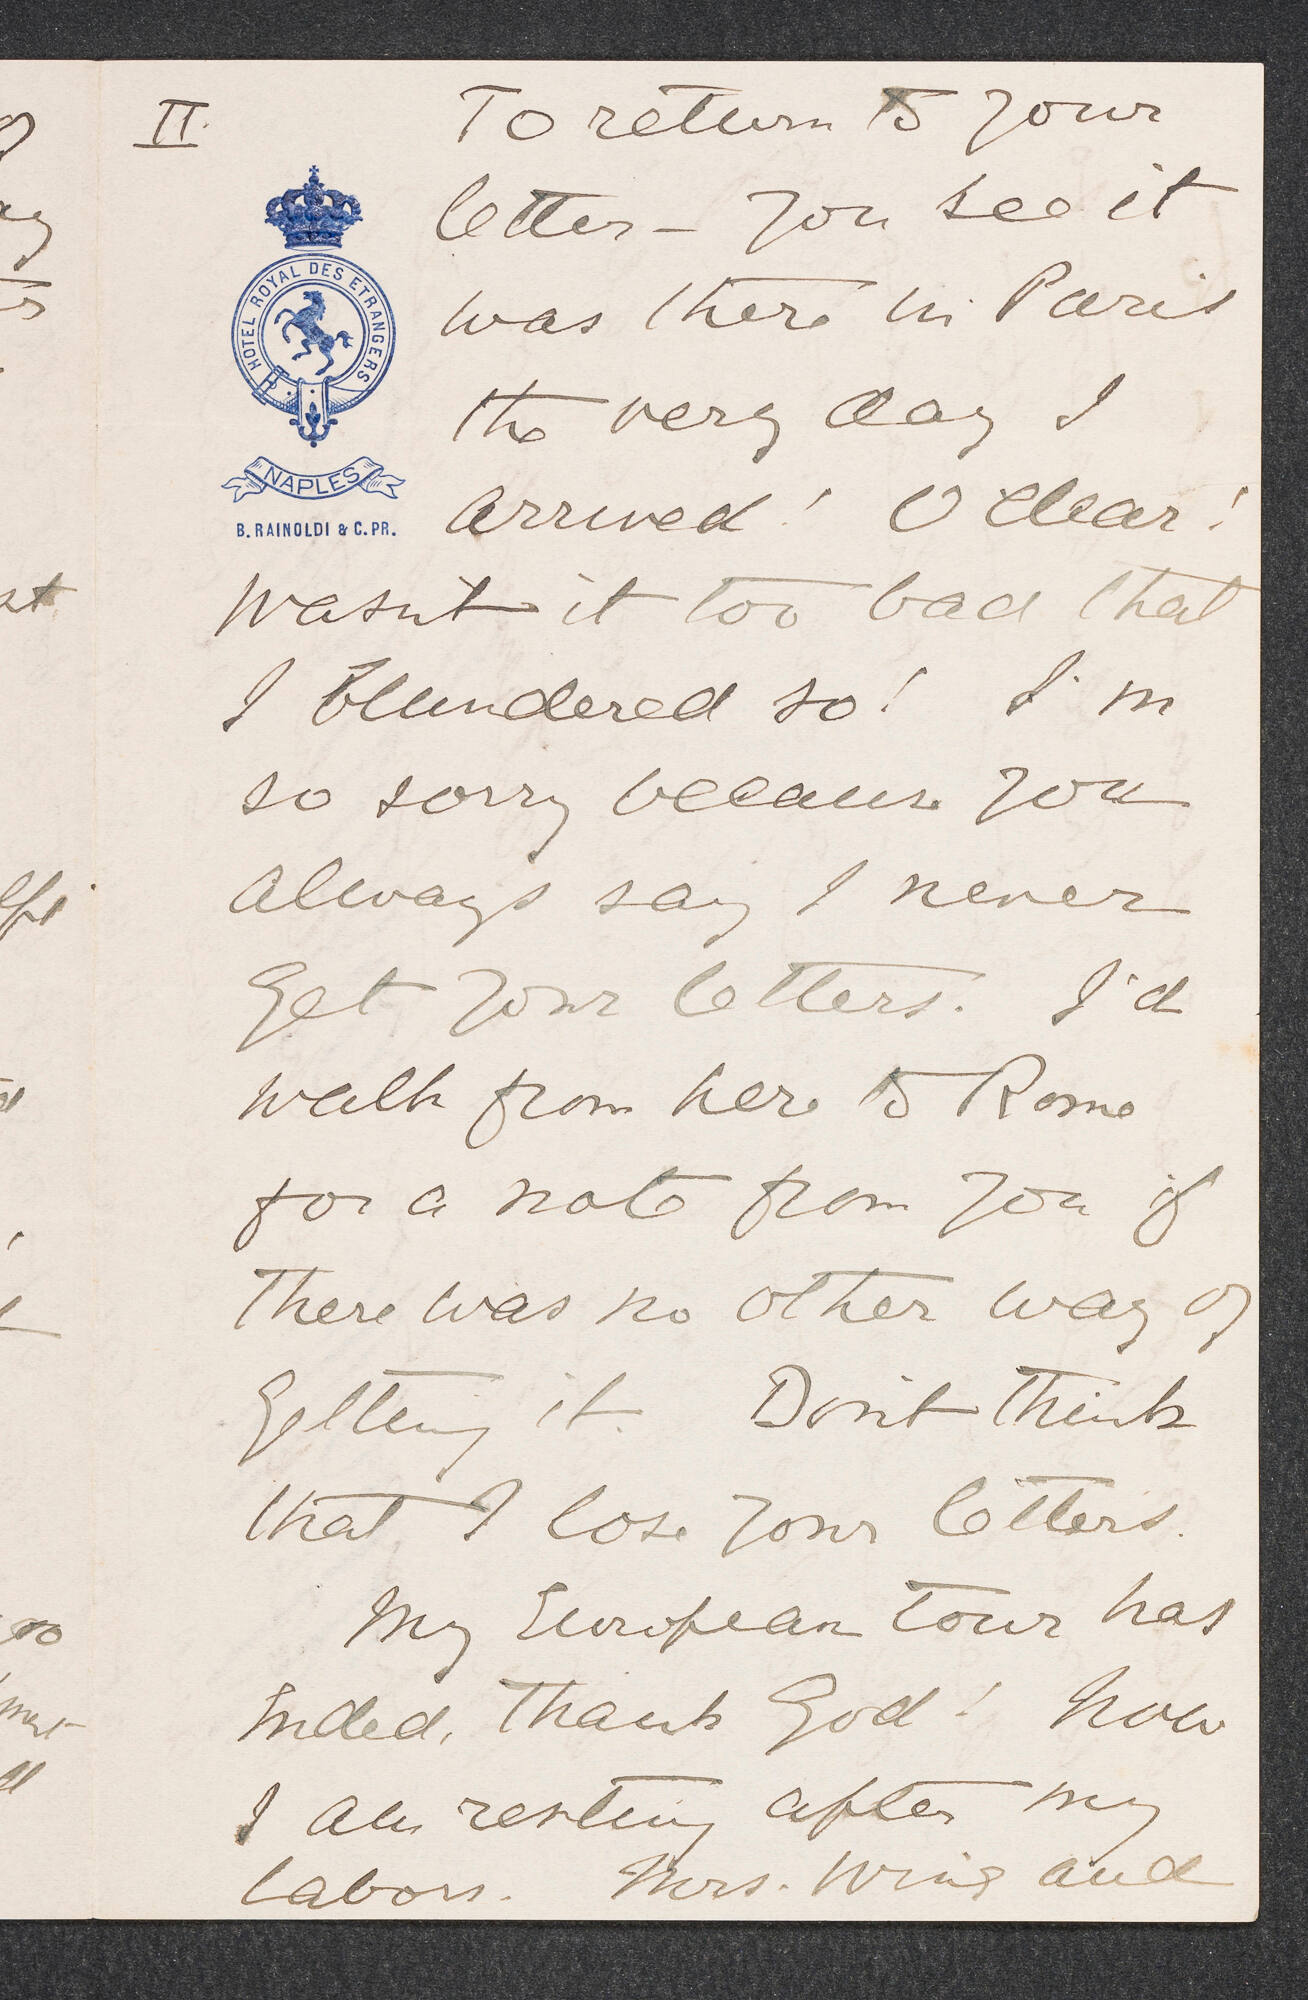 II.
HOTEL ROYAL DES ETRANGERS
NAPLES
B. RAINOLDI & C. PR.
To return to your
letter – you see it
was there in Paris
the very day I
arrived! O dear!
Wasn't it too bad that
I blundered so! I'm
so sorry because you
always say I never
get your letters. I'd
walk from here to Rome
for a note from you if
there was no other way of
getting it. Don't think
that I lose your letters.
My European tour has
ended, thank God! Now
I am resting after my
labors. Mrs. Wing and